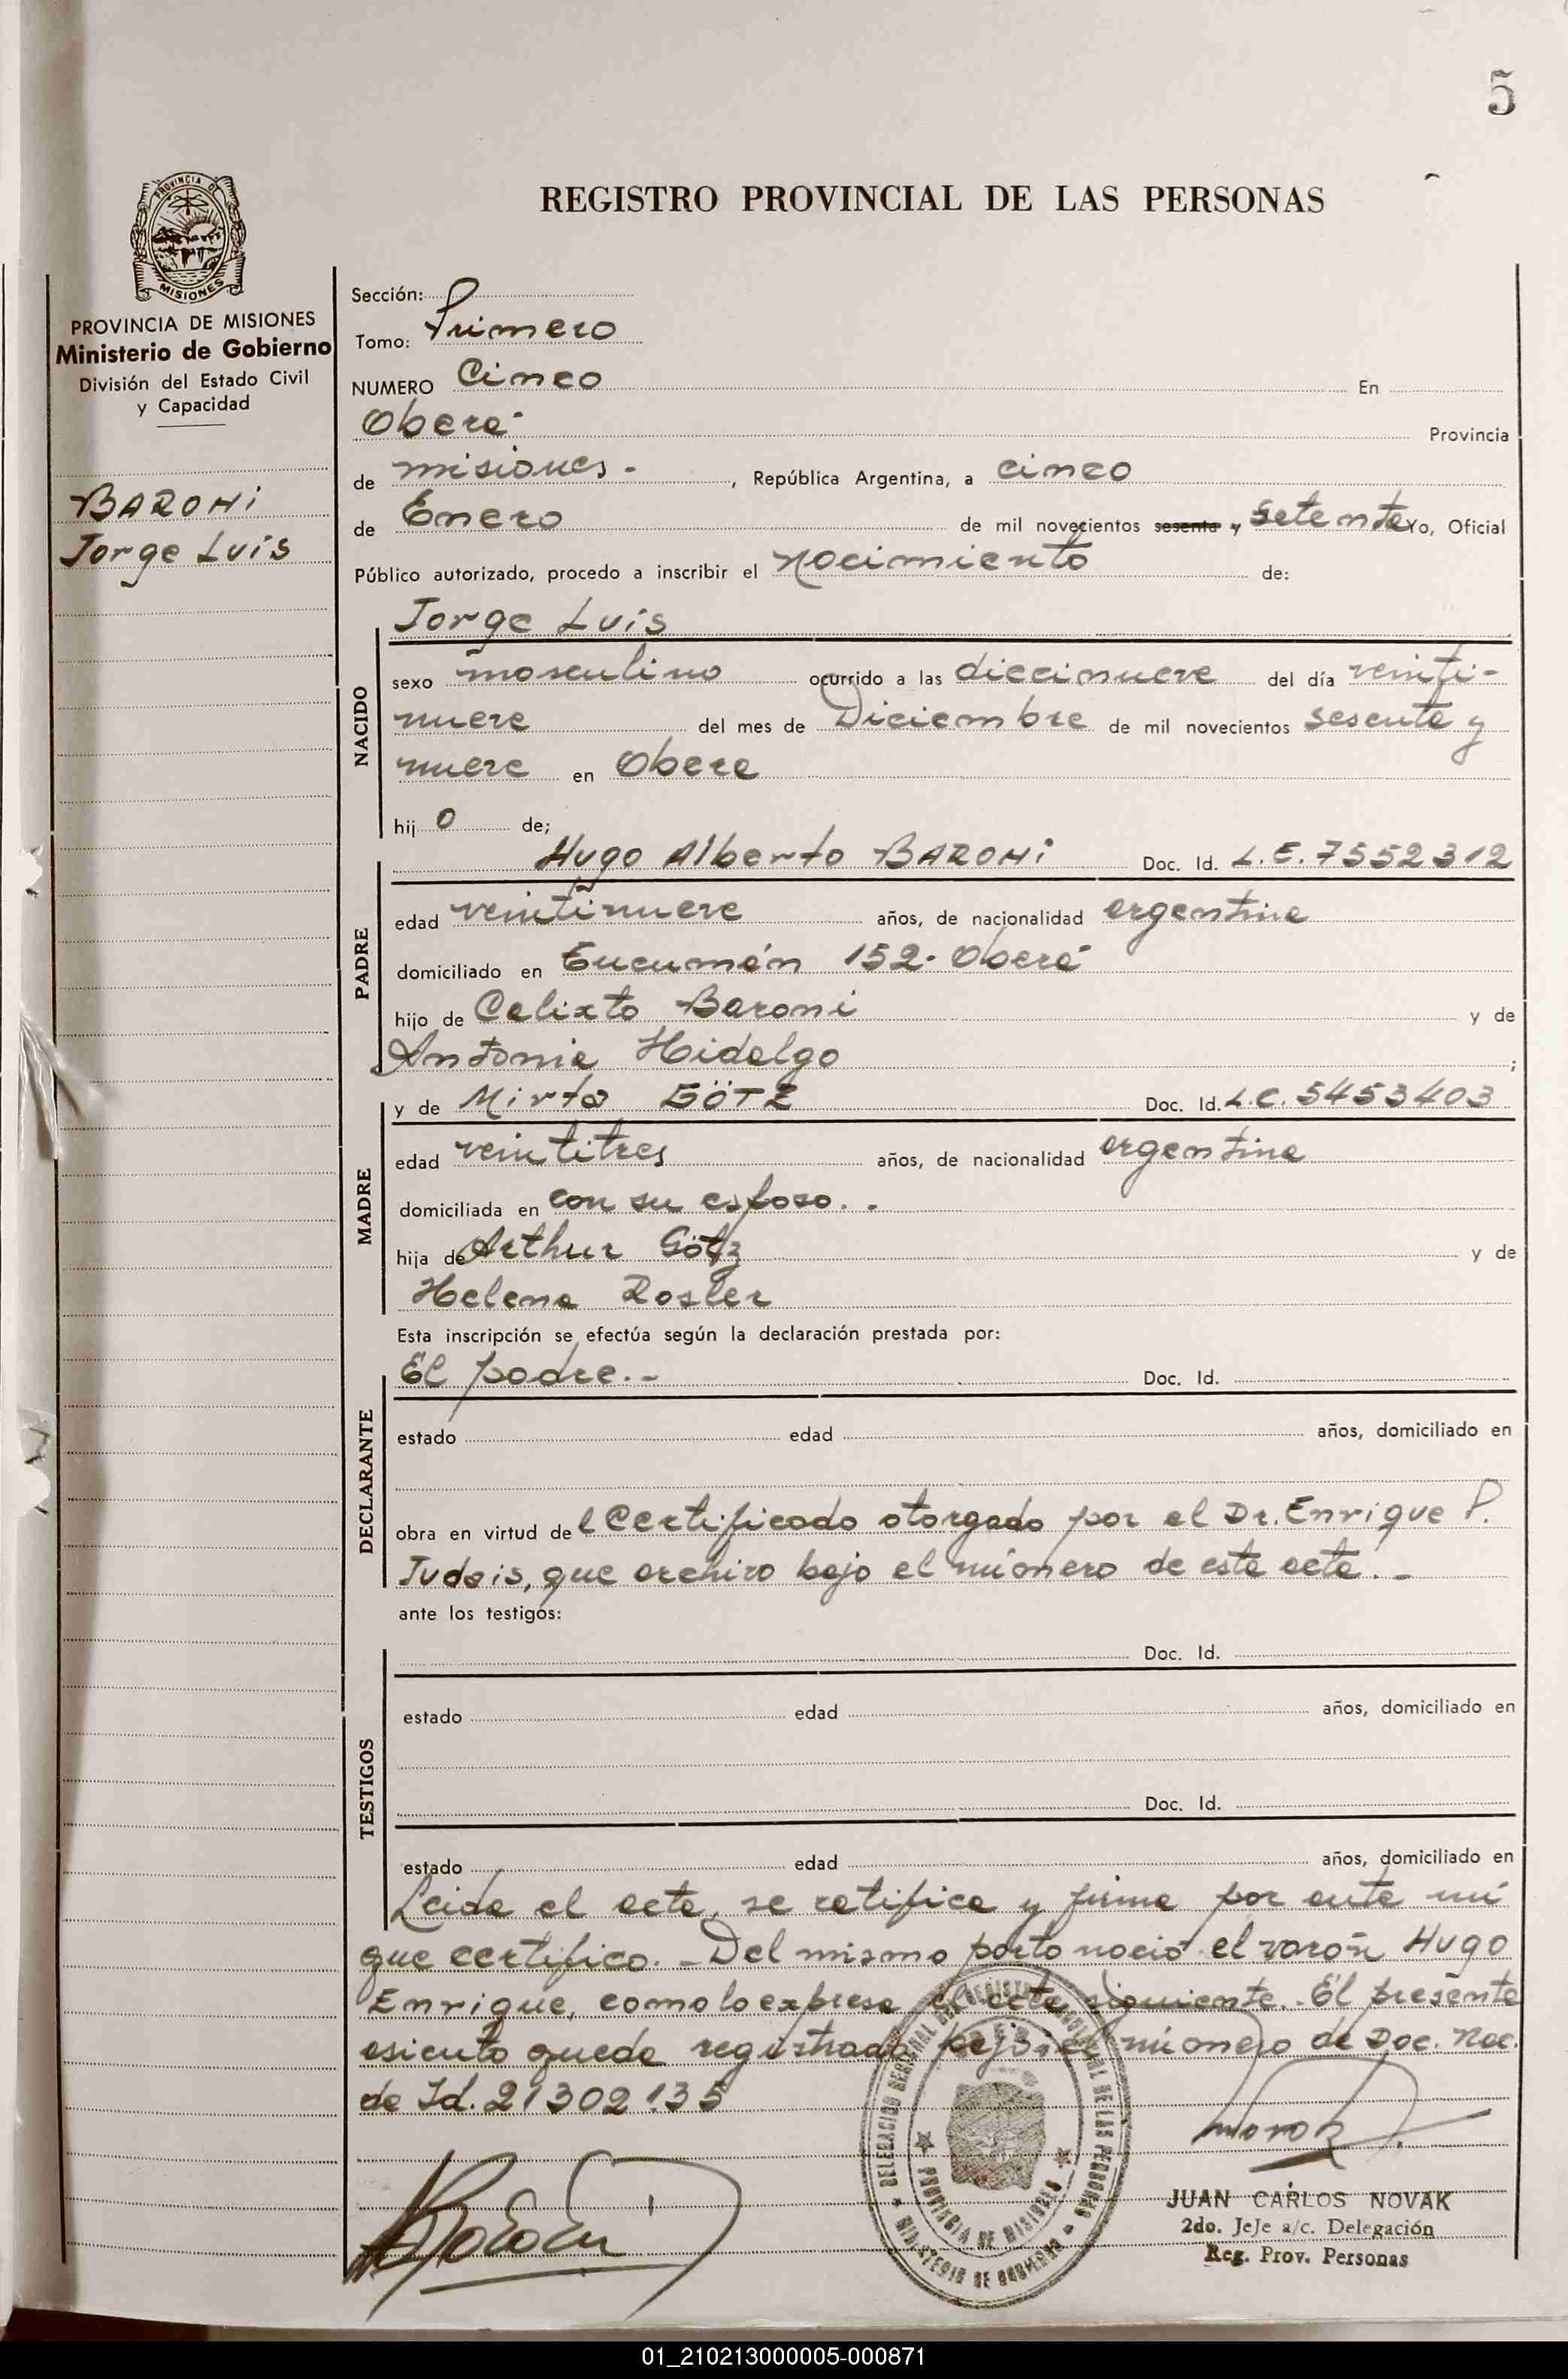 5
REGISTRO PROVINCIAL DE LAS PERSONAS
PROVINCIA DE
MISIONES
PROVINCIA DE MISIONES
Ministerio de Gobierno
División del Estado Civil
y Capacidad
BARONi
Jorge Luis
Sección:
Tomo: Primero
NUMERO Cinco En
Oberá Provincia
de misiones.- , República Argentina, a cinco
de Enero de mil novecientos sesenta y setenta Yo, Oficial
Público autorizado, procedo a inscribir el nacimiento de:
Jorge Luis
NACIDO
sexo masculino ocurrido a las diecinueve del día veinti-
nueve del mes de Diciembre de mil novecientos sesenta y
nueve en Obera
hij o de;
Hugo Alberto BARONi Doc. Id. L.E. 7552312
PADRE
edad veintinueve años, de nacionalidad argentina
domiciliado en Tucumán 152- Oberá
hijo de Calixto Baroni y de
Antonia Hidalgo ;
y de Mirta GÖTZ Doc. Id. L.C. 5453403
MADRE
edad veintitres años, de nacionalidad argentina
domiciliada en con su esposo. .
hija de Arthur Götz y de
Helena Rosler
Esta inscripción se efectúa según la declaración prestada por:
El padre.- Doc. Id.
DECLARANTE
estado edad años, domiciliado en
obra en virtud de l Certificado otorgado por el Dr. Enrique P.
Judais, que archivo bajo el número de esta acta.-
ante los testigos:
Doc. Id.
TESTIGOS
estado edad años, domiciliado en
Doc. Id.
estado edad años, domiciliado en
Leida el acta, se ratifica y firma por ante mi
que certifico.- Del mismo parto nació el varón Hugo
Enrique, como lo expresa el acta siguiente.- El presente
asiento queda registrado bajo el número de Doc. Nac.
de Id. 21302.135
DELEGACION REGIONAL DEL REGISTRO PROVINCIAL DE LAS PERSONAS
PROVINCIA DE MISIONES
MINISTERIO DE GOBIERNO
Novak
JUAN CARLOS NOVAK
2do. JeJe a/c. Delegación
Reg. Prov. Personas
01_210213000005-000871